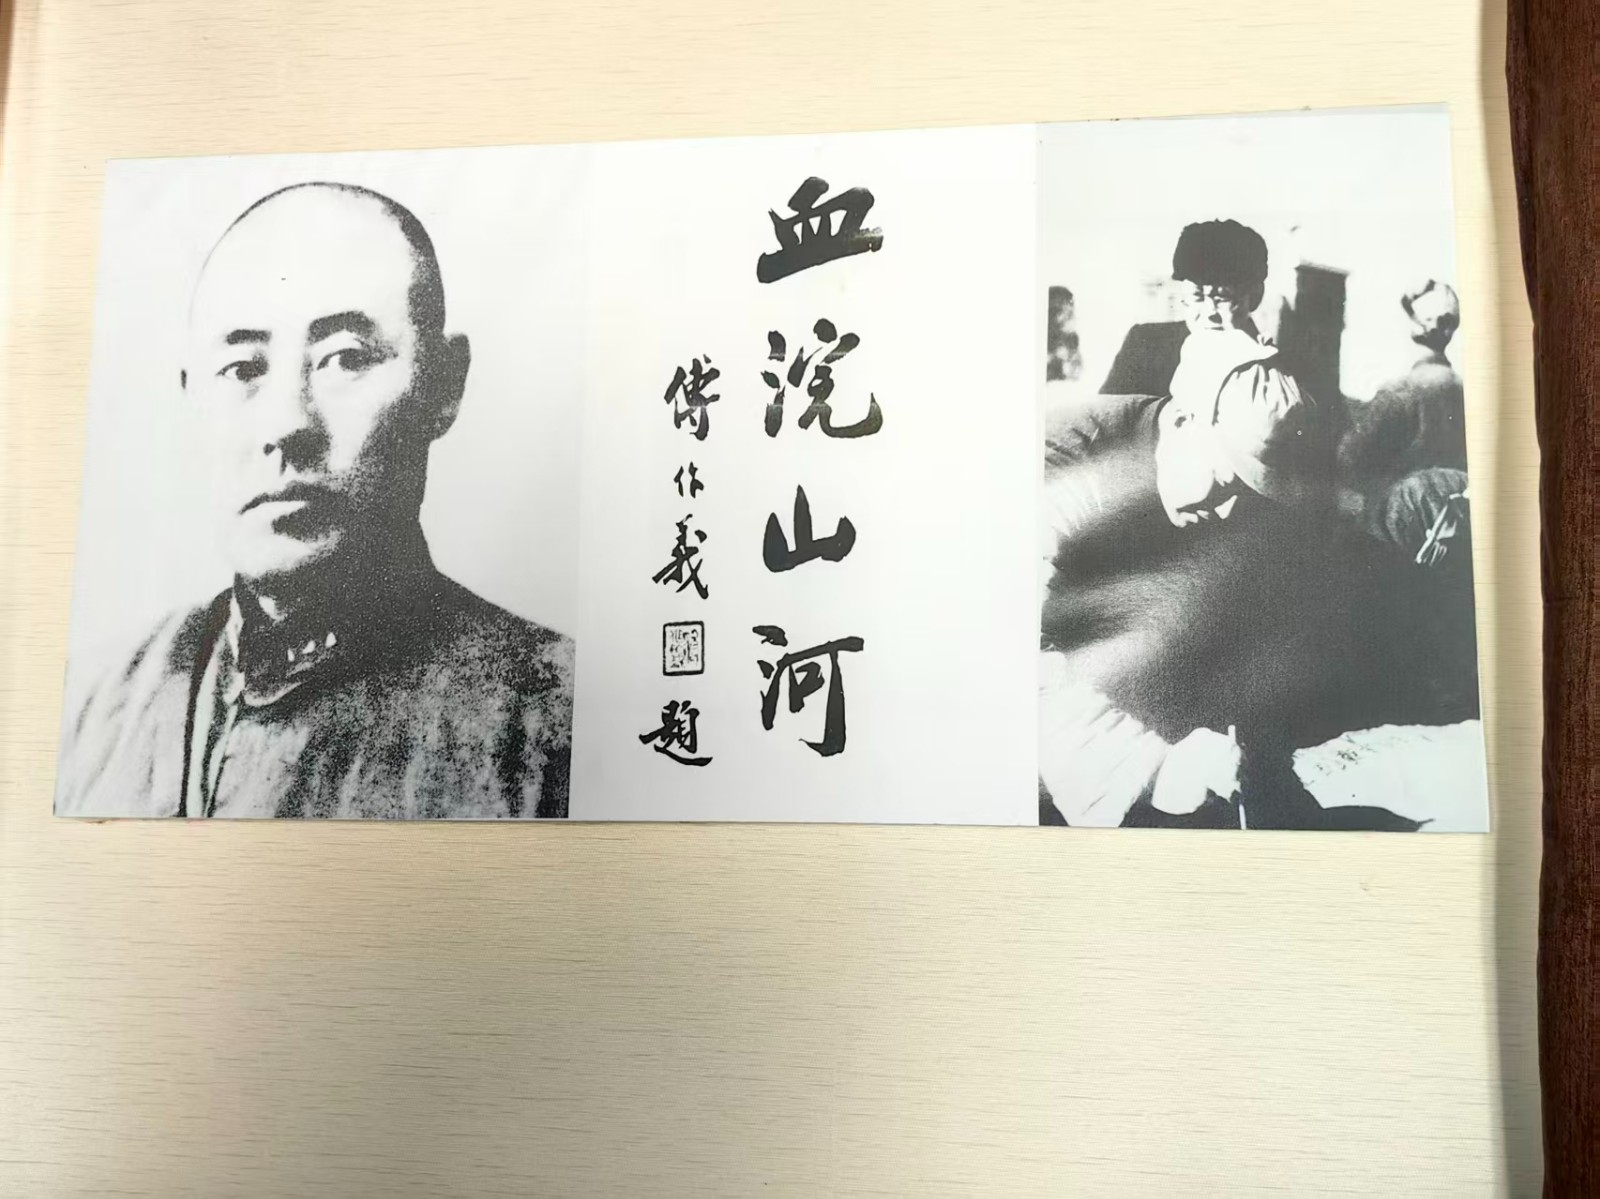 血浣山河
傅作義
題